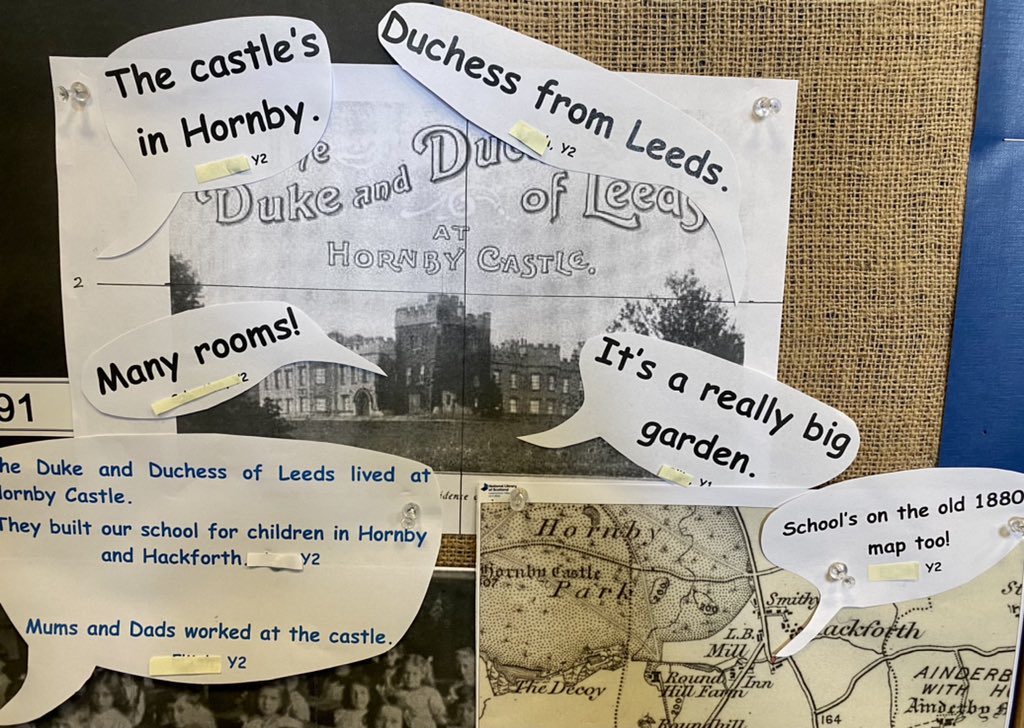 The castle's
in Hornby.
Y2
Duchess from Leeds.
Y2
Duke and
of Leeds
AT
HORNBY CASTLE.
2
Many rooms!
It's a really big
garden.
91
Duke and Duchess of Leeds lived at
Castle.
They built our school for children in Hornby
and Hackforth. Y2
Mums and Dads worked at the castle.
Y2
School's on the old 1880
map too!
Y2
National Library
of Scotland
Hornby
Hornby Castle
Park
200
Smithy
L.B.
Mill
Inn
Round
Hill Farm
The Decoy
Roundhill
164
WITH